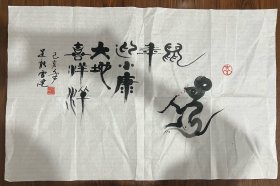 鼠
年
迎小康
大地
喜洋洋
己亥冬